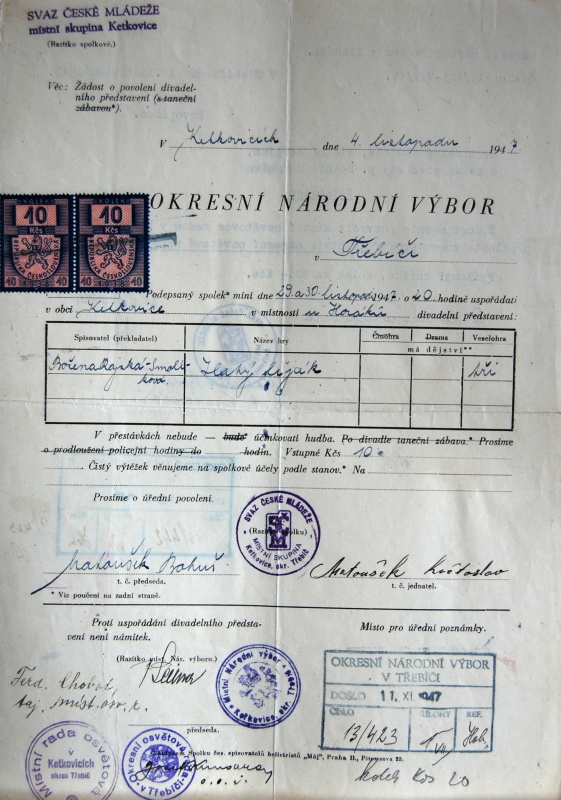 SVAZ ČESKÉ MLÁDEŽE
místní skupina Ketkovice
(Razítko spolkové.)
Věc: Žádost o povolení divadel-
ního představení (s taneční
zábavou*).
V Ketkovicích dne 4. listopadu 1947
OKRESNÍ NÁRODNÍ VÝBOR
v Třebíči
10 10
Kčs Kčs
REPUBLIKA ČESKOSLOVENSKÁ REPUBLIKA ČESKOSLOVENSKÁ
10 10 10 10
Podepsaný spolek* míní dne 29. a 30. listopadu 1947 o 20 hodině uspořádati
v obci Ketkovice v místnosti u Horáků divadelní představení:
Spisovatel (překladatel) Název hry Činohra Drama Veselohra
má dějství**
Božena Rajská-Smolí-
ková Zlatý lišák tři
V přestávkách nebude — bude* účinkovati hudba. Po divadle taneční zábava.* Prosíme
o prodloužení policejní hodiny do hodin. Vstupné Kčs 10.-
Čistý výtěžek věnujeme na spolkové účely podle stanov.* Na
Prosíme o úřední povolení.
(Razítko spolku)
SVAZ ČESKÉ MLÁDEŽE
MÍSTNÍ SKUPINA
Ketkovice, okr. Třebíč
Matoušek Bohuš Matoušek Květoslav
t. č. předseda. t. č. jednatel.
* Viz poučení na zadní straně.
Proti uspořádání divadelního předsta-
vení není námitek.
Místo pro úřední poznámky.
(Razítko míst. Nár. výboru.)
Místní Národní výbor
Ketkovice, okr.
předseda.
Ferd. Chobot,
taj. míst. osv. r.
OKRESNÍ NÁRODNÍ VÝBOR
V TŘEBÍČI
DOŠLO 11. XI. 1947
ČÍSLO PŘÍLOHY REF.
13/423
Místní rada osvětová
v
Ketkovicích
okres Třebíč
Okresní osvětová rada
v Třebíči
Nákladem Spolku čes. spisovatelů beletristů „Máj", Praha II.,
o. o. i.
Kčs 20